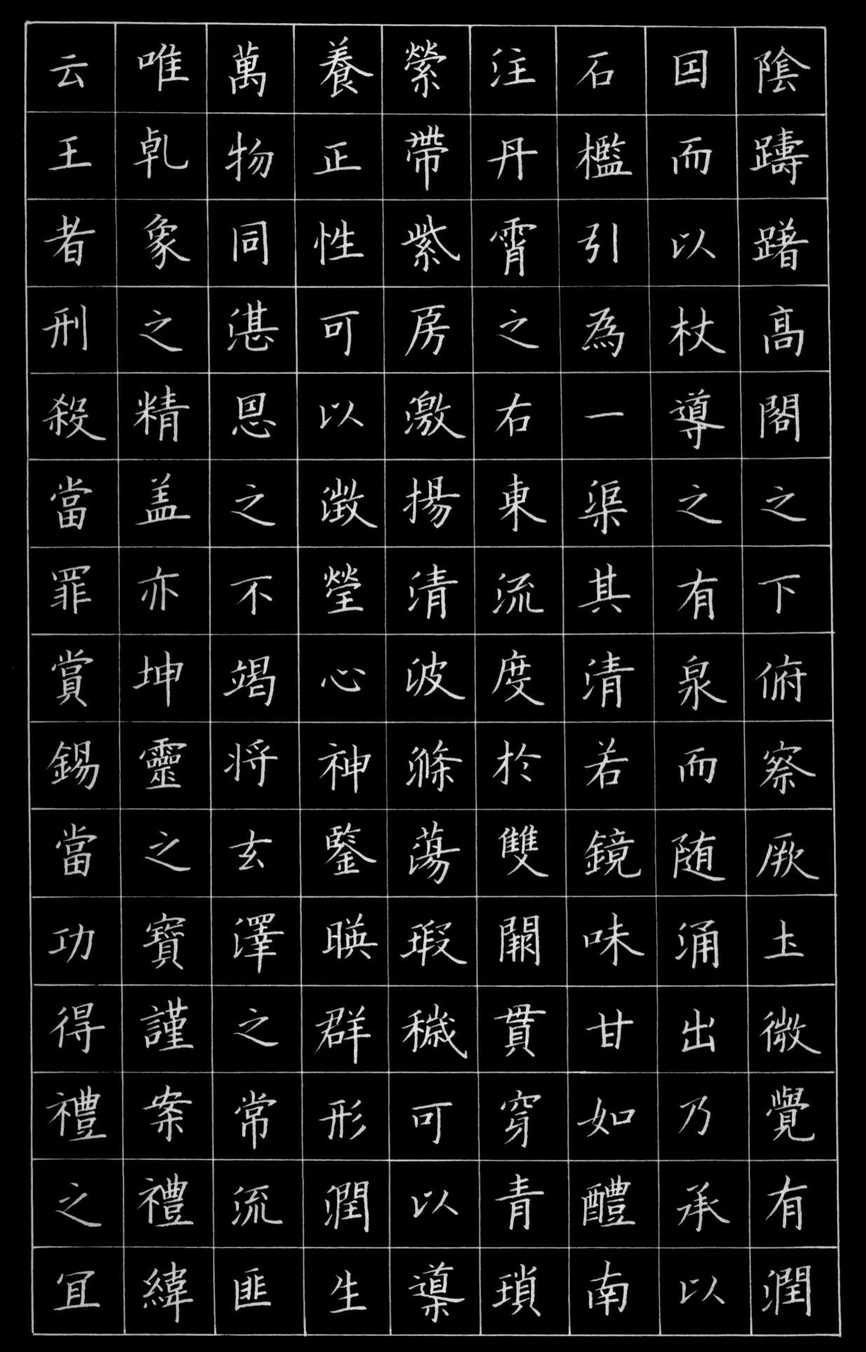 陰躊躇高閣之下俯察厥土微覺有潤
囙而以杖導之有泉而随涌出乃承以
石檻引為一渠其清若鏡味甘如醴南
注丹霄之右東流度於雙闕貫穿青瑣
縈帶紫房激揚清波滌蕩瑕穢可以導
養正性可以澂瑩心神鑒暎群形潤生
萬物同湛恩之不竭将玄澤之常流匪
唯乹象之精盖亦坤靈之寶謹案禮緯
云王者刑殺當罪賞錫當功得禮之冝